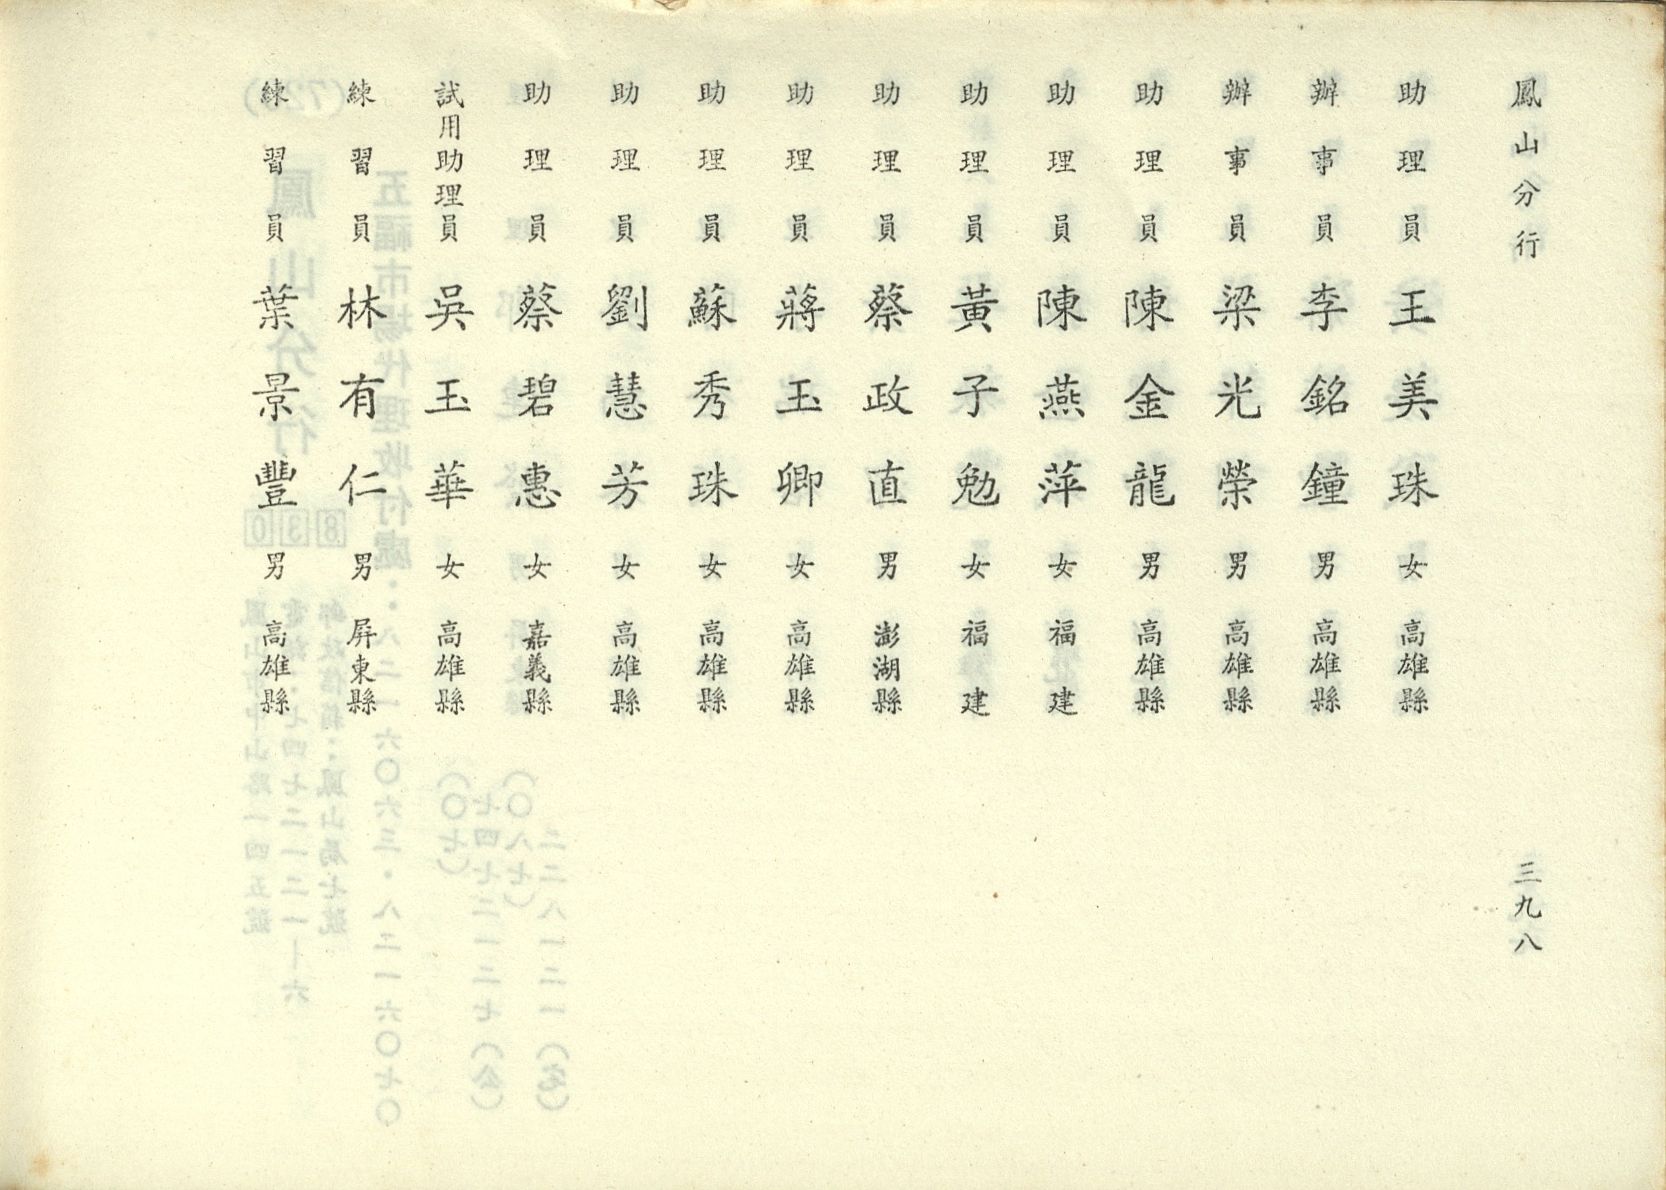 鳳山分行
三九八
助理員 王美珠 女 高雄縣
辦事員 李銘鐘 男 高雄縣
辦事員 梁光榮 男 高雄縣
助理員 陳金龍 男 高雄縣
助理員 陳燕萍 女 福建
助理員 黃子勉 女 福建
助理員 蔡政直 男 澎湖縣
助理員 蔣玉卿 女 高雄縣
助理員 蘇秀珠 女 高雄縣
助理員 劉慧芳 女 高雄縣
助理員 蔡碧惠 女 嘉義縣
試用助理員 吳玉華 女 高雄縣
練習員 林有仁 男 屏東縣
練習員 葉景豐 男 高雄縣